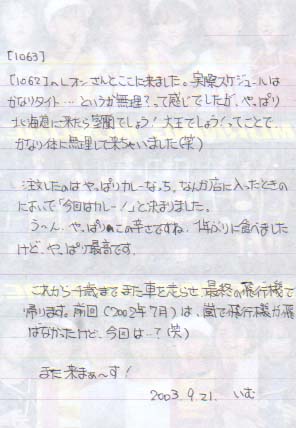 [1063]
[1062]のレオンさんとここに来ました。実際スケジュールは
かなりタイト…というか無理？って感じでしたが、やっぱり
北海道に来たら室蘭でしょう！大王でしょう！ってことで
かなり体に無理して来ちゃいました(笑)
注文したのはやっぱりカレーなっち。なんか店に入ったときの
においで「今回はカレー！」と決まりました。
う〜ん、やっぱりこの辛さですね。1年ぶりに食べました
けど、やっぱり最高です。
これから千歳までまた車を走らせ、最終の飛行機で
帰ります。前回(2002年7月)は、嵐で飛行機が飛
ばなかったけど、今回は…？(笑)
また来まぁ〜す！
2003.9.21. いむ